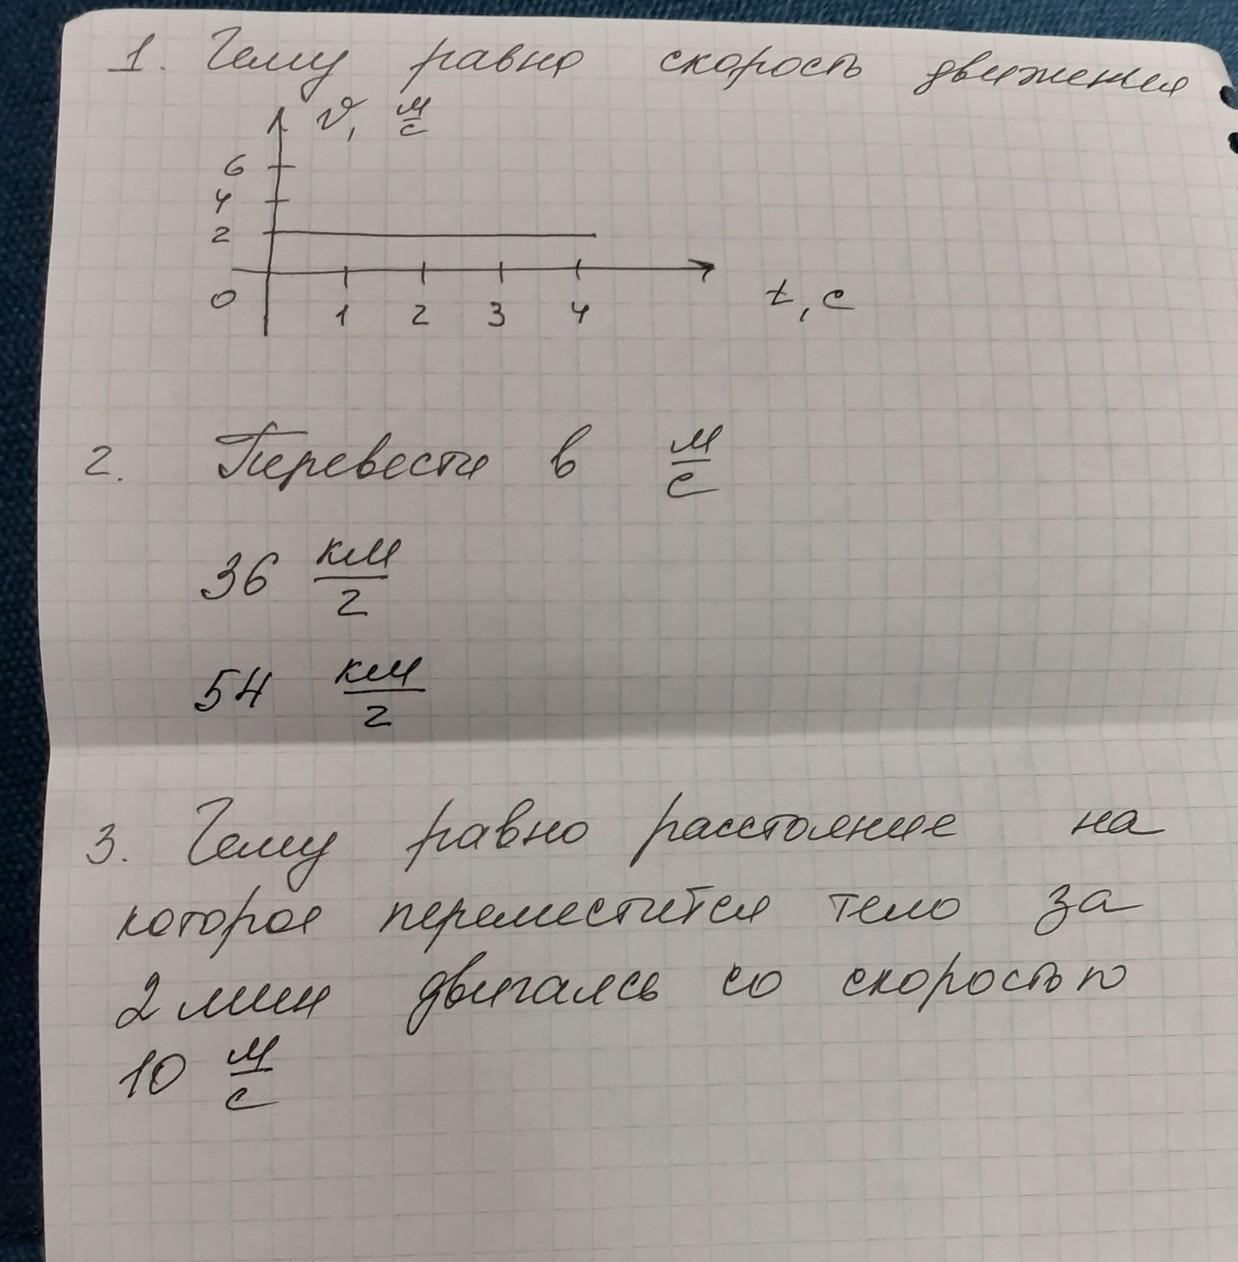 1. Чему равно скорость движения
υ, м/с
6
4
2
0 1 2 3 4 t, с
2. Перевести в м/с
36 км/г
54 км/г
3. Чему равно расстояние на
которое переместится тело за
2 мин двигаясь со скоростью
10 м/с